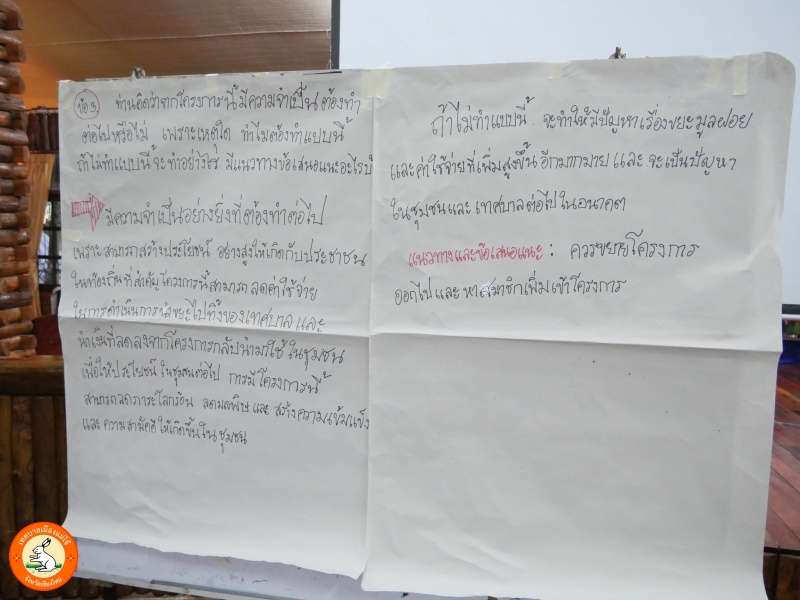 ข้อ 3 ท่านคิดว่าจากโครงการนี้ มีความจำเป็น ต้องทำ
ต่อไปหรือไม่ เพราะเหตุใด ทำไมต้องทำแบบนี้
ถ้าไม่ทำแบบนี้ จะทำอย่างไร มีแนวทางข้อเสนอแนะอะไรบ้
มีความจำเป็นอย่างยิ่งที่ต้องทำต่อไป
เพราะ สามารถสร้างประโยชน์ อย่างสูงให้เกิดกับประชาชน
ในท้องถิ่น ที่สำคัญโครงการนี้สามารถ ลดค่าใช้จ่าย
ในการดำเนินการนำขยะไปทิ้งของเทศบาล และ
นำเงินที่ลดลงจากโครงการกลับนำมาใช้ ในชุมชน
เพื่อให้ประโยชน์ ในชุมชนต่อไป การมีโครงการนี้
สามารถลดภาวะโลกร้อน ลดมลพิษ และ สร้างความเข้มแข็ง
และ ความสามัคคีให้เกิดขึ้นใน ชุมชน
ถ้าไม่ทำแบบนี้ จะทำให้มีปัญหาเรื่องขยะมูลฝอย
และค่าใช้จ่ายที่เพิ่มสูงขึ้น อีกมากมาย และ จะเป็นปัญหา
ในชุมชนและ เทศบาลต่อไปในอนาคต
แนวทางและข้อเสนอแนะ : ควรขยายโครงการ
ออกไป และ หาสมาชิกเพิ่มเข้าโครงการ
เทศบาลเมืองแม่โจ้
จังหวัดเชียงใหม่